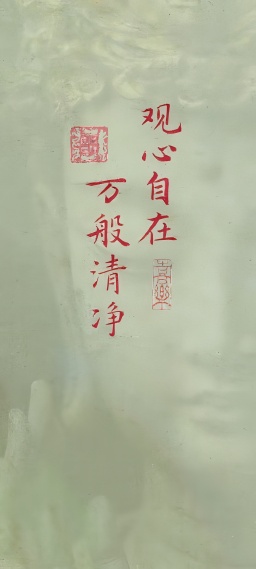 观心自在
万般清净